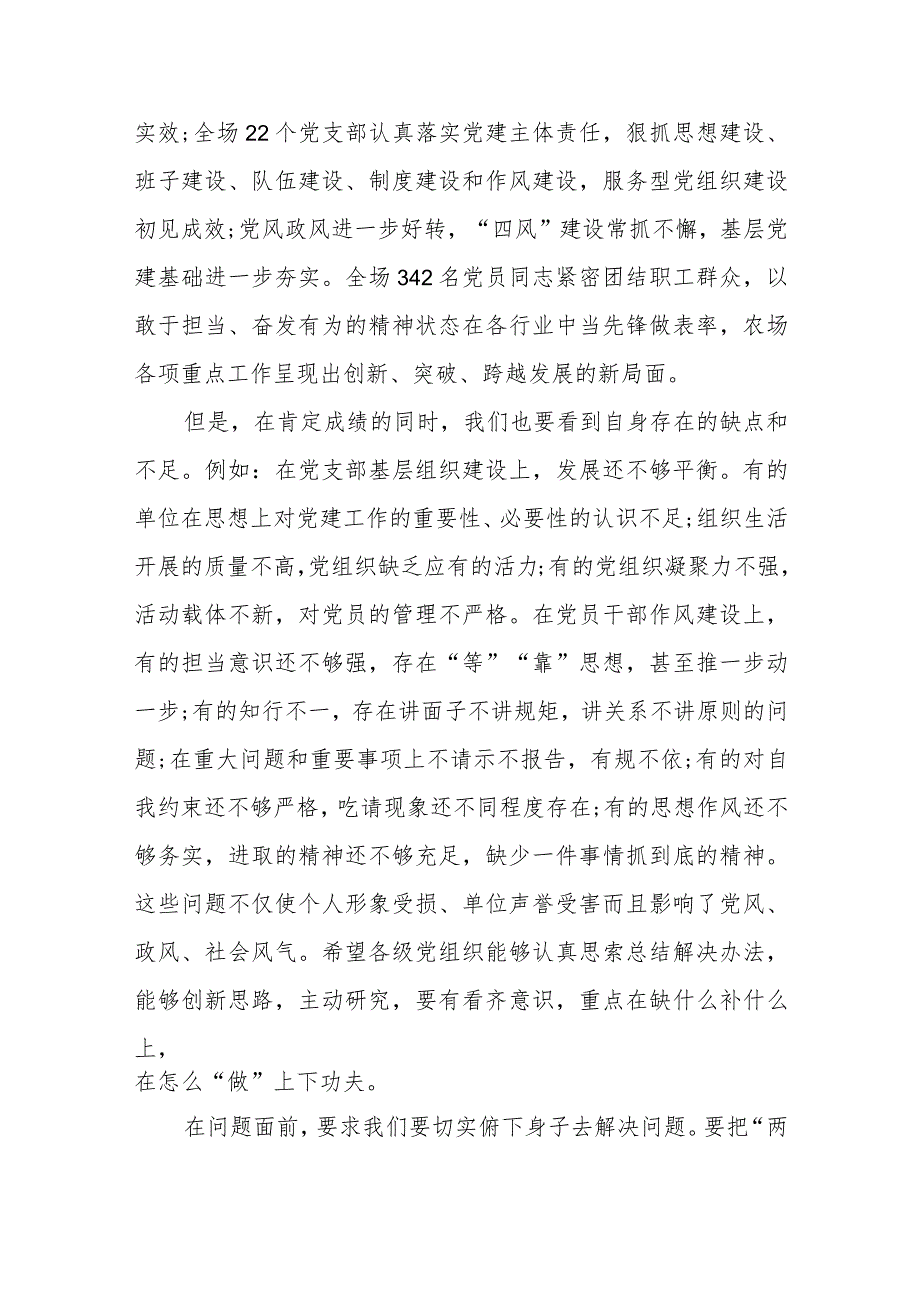 实效;全场 22 个党支部认真落实党建主体责任，狠抓思想建设、
班子建设、队伍建设、制度建设和作风建设，服务型党组织建设
初见成效;党风政风进一步好转，“四风”建设常抓不懈，基层党
建基础进一步夯实。全场 342 名党员同志紧密团结职工群众，以
敢于担当、奋发有为的精神状态在各行业中当先锋做表率，农场
各项重点工作呈现出创新、突破、跨越发展的新局面。
但是，在肯定成绩的同时，我们也要看到自身存在的缺点和
不足。例如：在党支部基层组织建设上，发展还不够平衡。有的
单位在思想上对党建工作的重要性、必要性的认识不足;组织生活
开展的质量不高，党组织缺乏应有的活力;有的党组织凝聚力不强，
活动载体不新，对党员的管理不严格。在党员干部作风建设上，
有的担当意识还不够强，存在“等”“靠”思想，甚至推一步动
一步;有的知行不一，存在讲面子不讲规矩，讲关系不讲原则的问
题;在重大问题和重要事项上不请示不报告，有规不依;有的对自
我约束还不够严格，吃请现象还不同程度存在;有的思想作风还不
够务实，进取的精神还不够充足，缺少一件事情抓到底的精神。
这些问题不仅使个人形象受损、单位声誉受害而且影响了党风、
政风、社会风气。希望各级党组织能够认真思索总结解决办法，
能够创新思路，主动研究，要有看齐意识，重点在缺什么补什么
上，
在怎么“做”上下功夫。
在问题面前，要求我们要切实俯下身子去解决问题。要把“两